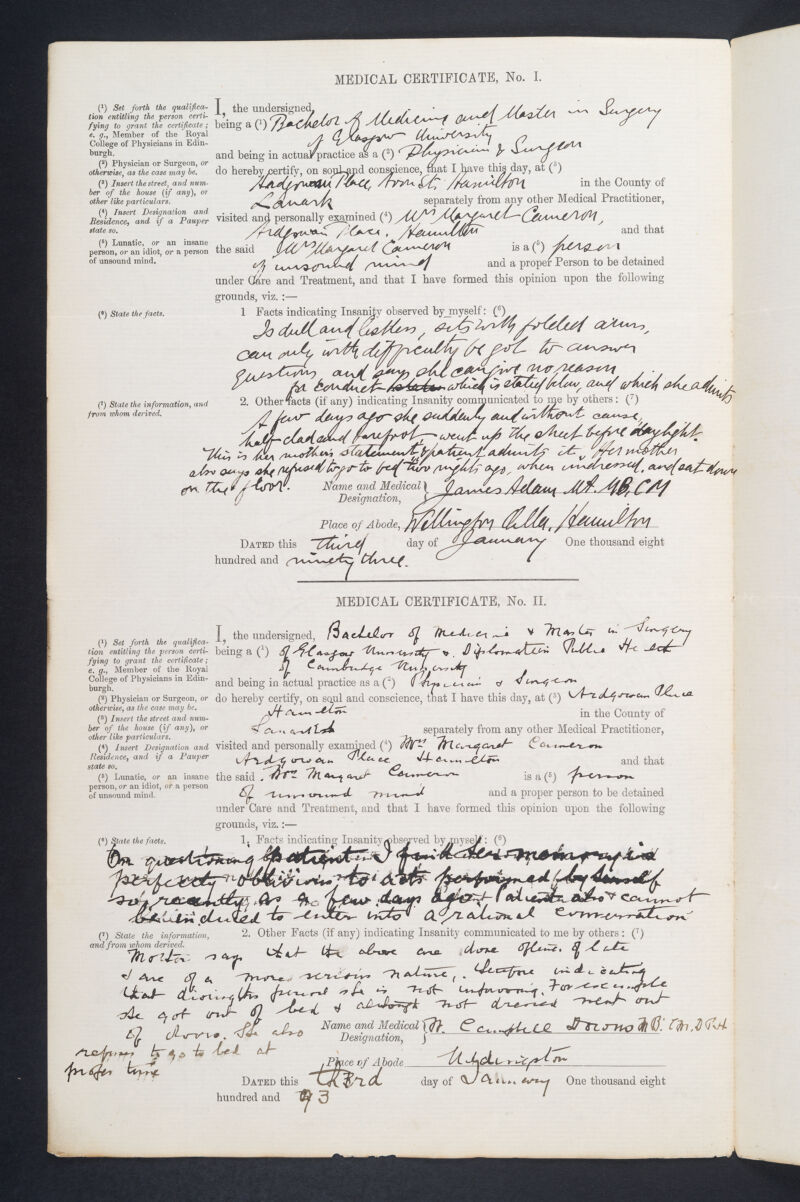 MEDICAL CERTIFICATE, No. I.
(¹) Set forth the qualifica-
tion entitling the person certi-
fying to grant the certificate;
e. g., Member of the Royal
College of Physicians in Edin-
burgh.
(²) Physician or Surgeon, or
otherwise, as the case may be.
(³) Insert the street, and num-
ber of the house (if any), or
other like particulars.
(⁴) Insert Designation and
Residence, and if a Pauper
state so.
(⁵) Lunatic, or an insane
person, or an idiot, or a person
of unsound mind.
I, the undersigned,
being a (¹) Bachelor of Medicine and Master in Surgery
of Glasgow University
and being in actual practice as a (²) Physician & Surgeon
do hereby certify, on soul and conscience, that I have this day, at (³)
Ardgowan Place, Hamilton in the County of
Lanark separately from any other Medical Practitioner,
visited and personally examined (⁴) Mrs Margaret Cameron,
Ardgowan Place, Hamilton and that
the said Mrs Margaret Cameron is a (⁵) person
of unsound mind and a proper Person to be detained
under Care and Treatment, and that I have formed this opinion upon the following
grounds, viz. :—
(⁶) State the facts.
1 Facts indicating Insanity observed by myself: (⁶)
Is dull and listless, sits with folded arms,
can only with difficulty be got to answer
questions, and says she can give no reason
for conduct which is stated below, and which she admits
(⁷) State the information, and
from whom derived.
2. Other facts (if any) indicating Insanity communicated to me by others: (⁷)
A few days ago she suddenly and without cause,
half-clad and barefoot, went up the street before daylight.
This is her mothers statement & patient admits it. Her mother
also says she refused to go to bed two nights ago, when undressed, and sat down
on the floor.
Name and Medical
Designation, James Adam MA. MB, CM
Place of Abode, Wellington Villa, Hamilton
DATED this third day of January One thousand eight
hundred and ninety three.
MEDICAL CERTIFICATE, No. II.
(¹) Set forth the qualifica-
tion entitling the person certi-
fying to grant the certificate;
e. g., Member of the Royal
College of Physicians in Edin-
burgh.
(²) Physician or Surgeon, or
otherwise, as the case may be.
(³) Insert the street and num-
ber of the house (if any), or
other like particulars.
(⁴) Insert Designation and
Residence, and if a Pauper
state so.
(⁵) Lunatic, or an insane
person, or an idiot, or a person
of unsound mind.
I, the undersigned, Bachelor of Medicine & Master in Surgery
being a (¹) of Glasgow University & Diplomate in Public Health
of Cambridge University
and being in actual practice as a (²) Physician & Surgeon
do hereby certify, on soul and conscience, that I have this day, at (³) Ardgowan Place
Hamilton in the County of
separately from any other Medical Practitioner,
visited and personally examined (⁴) Mrs Margaret Cameron
Ardgowan Place Hamilton and that
the said Mrs Margaret Cameron is a (⁵) person
of unsound mind and a proper person to be detained
under Care and Treatment, and that I have formed this opinion upon the following
grounds, viz. :—
(⁶) State the facts.
1. Facts indicating Insanity observed by myself: (⁶)
On questioning patient I find her memory is
perfectly oblivious to acts performed by herself
so recently as a few days ago. Patient also cannot
be induced to enter into a rational conversation
(⁷) State the information,
and from whom derived.
2. Other Facts (if any) indicating Insanity communicated to me by others: (⁷)
Mother says that the above are done oftener of late
& are of a more serious nature, therefore indicating
that during this period she is not improving. For example
she got out of bed & although not dressed went out
of doors. She also
refuses to go to bed at
proper time
Name and Medical
Designation, W. Campbell M.B. C.M. D.P.H
Place of Abode Uddingston
DATED this third day of January One thousand eight
hundred and 93